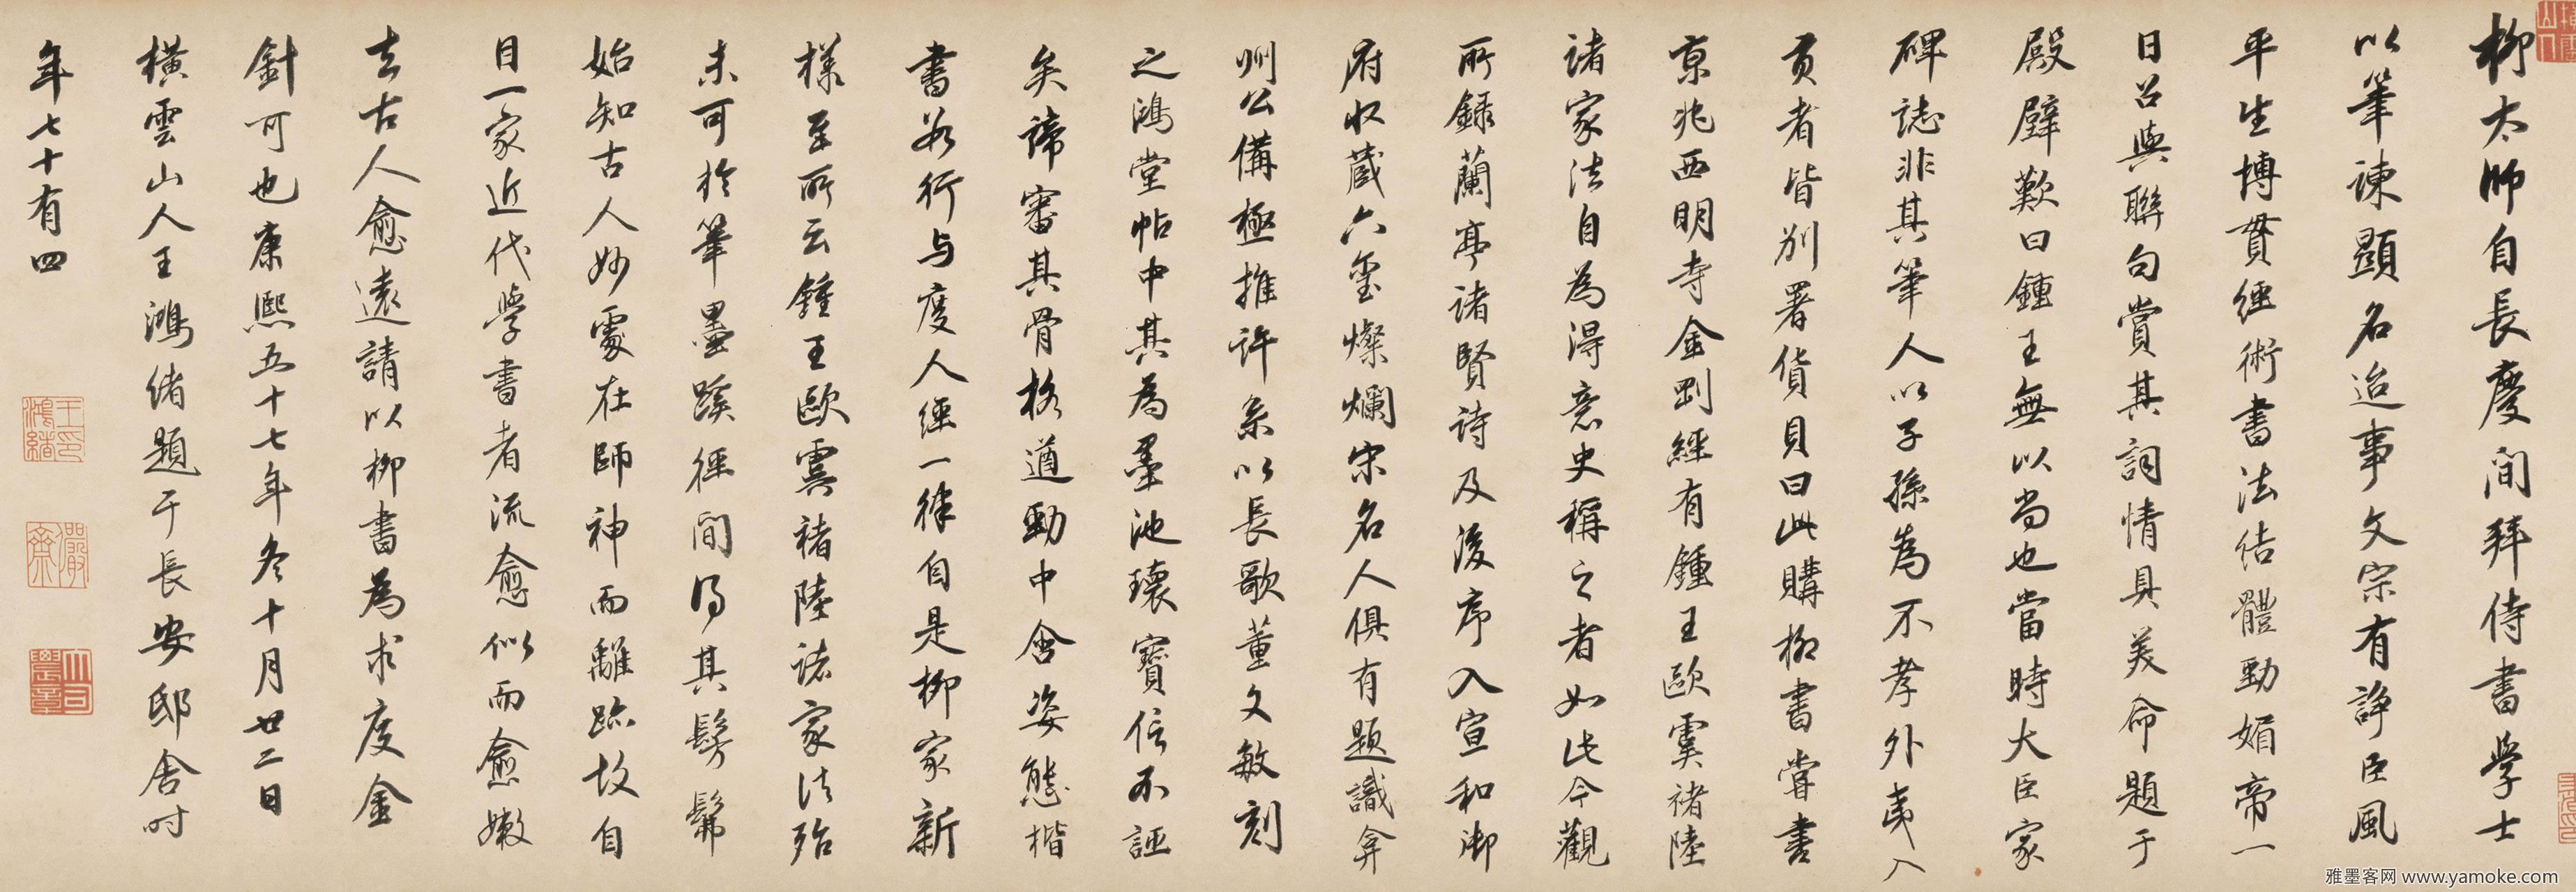 柳太師自長慶間拜侍書學士
以筆諫顯名迨事文宗有諍臣風
平生博貫經術書法結體勁媚帝一
日召與聯句賞其詞情具美命題于
殿壁歎曰鍾王無以尚也當時大臣家
碑誌非其筆人以子孫為不孝外夷入
貢者皆別署貨貝曰此購柳書嘗書
京兆西明寺金剛經有鍾王歐虞褚陸
諸家法自為得意史稱之者如此今觀
所録蘭亭諸賢詩及後序入宣和御
府收蔵六璽燦爛宋名人俱有題識弇
州公備極推許系以長歌董文敏刻
之鴻堂帖中其為墨池瓌寶信不誣
矣諦審其骨格遒勁中含姿態楷
書兼行与度人經一律自是柳家新
樣至所云鍾王歐虞褚陸諸家法殆
未可於筆墨蹊徑間得其髣髴
始知古人妙處在師神而離跡故自
目一家近代學書者流愈似而愈嫩
去古人愈遠請以柳書為求度金
針可也康熙五十七年冬十月廿二日
橫雲山人王鴻緒題于長安邸舍时
年七十有四
王鴻緒印
儼齋
大司農章
雅墨客网 www.yamoke.com